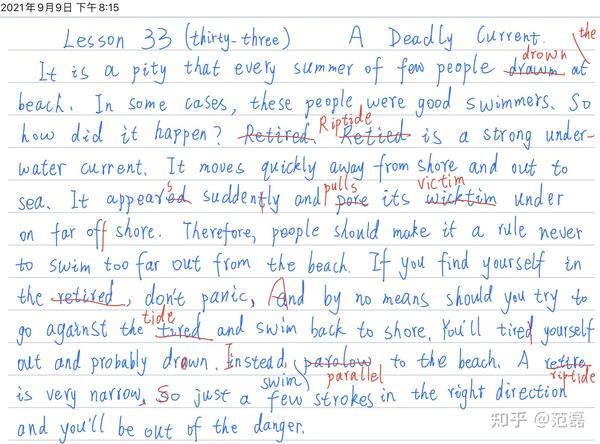 2021年9月9日 下午8:15
Lesson 33 (thirty-three) A Deadly Current. the
drown
It is a pity that every summer of few people drawn at
beach. In some cases, these people were good swimmers. So
Riptide
how did it happen? Retired Retied is a strong under-
water current. It moves quickly away from shore and out to
s pulls victim
sea. It appeared suddently and pore its wicktim under
on far off shore. Therefore, poople should make it a rule never
to swim too far out from the beach. If you find yourself in
the retired, don't panic, And by no means should you try to
tide
go against the tired and swim back to shore. You'll tired yourself
out and probably drown. Instead, parolow to the beach. A retire
swim parallel riptide
is very narrow, So just a few strokes in the right direction
and you'll be out of the danger.
知乎 @范磊